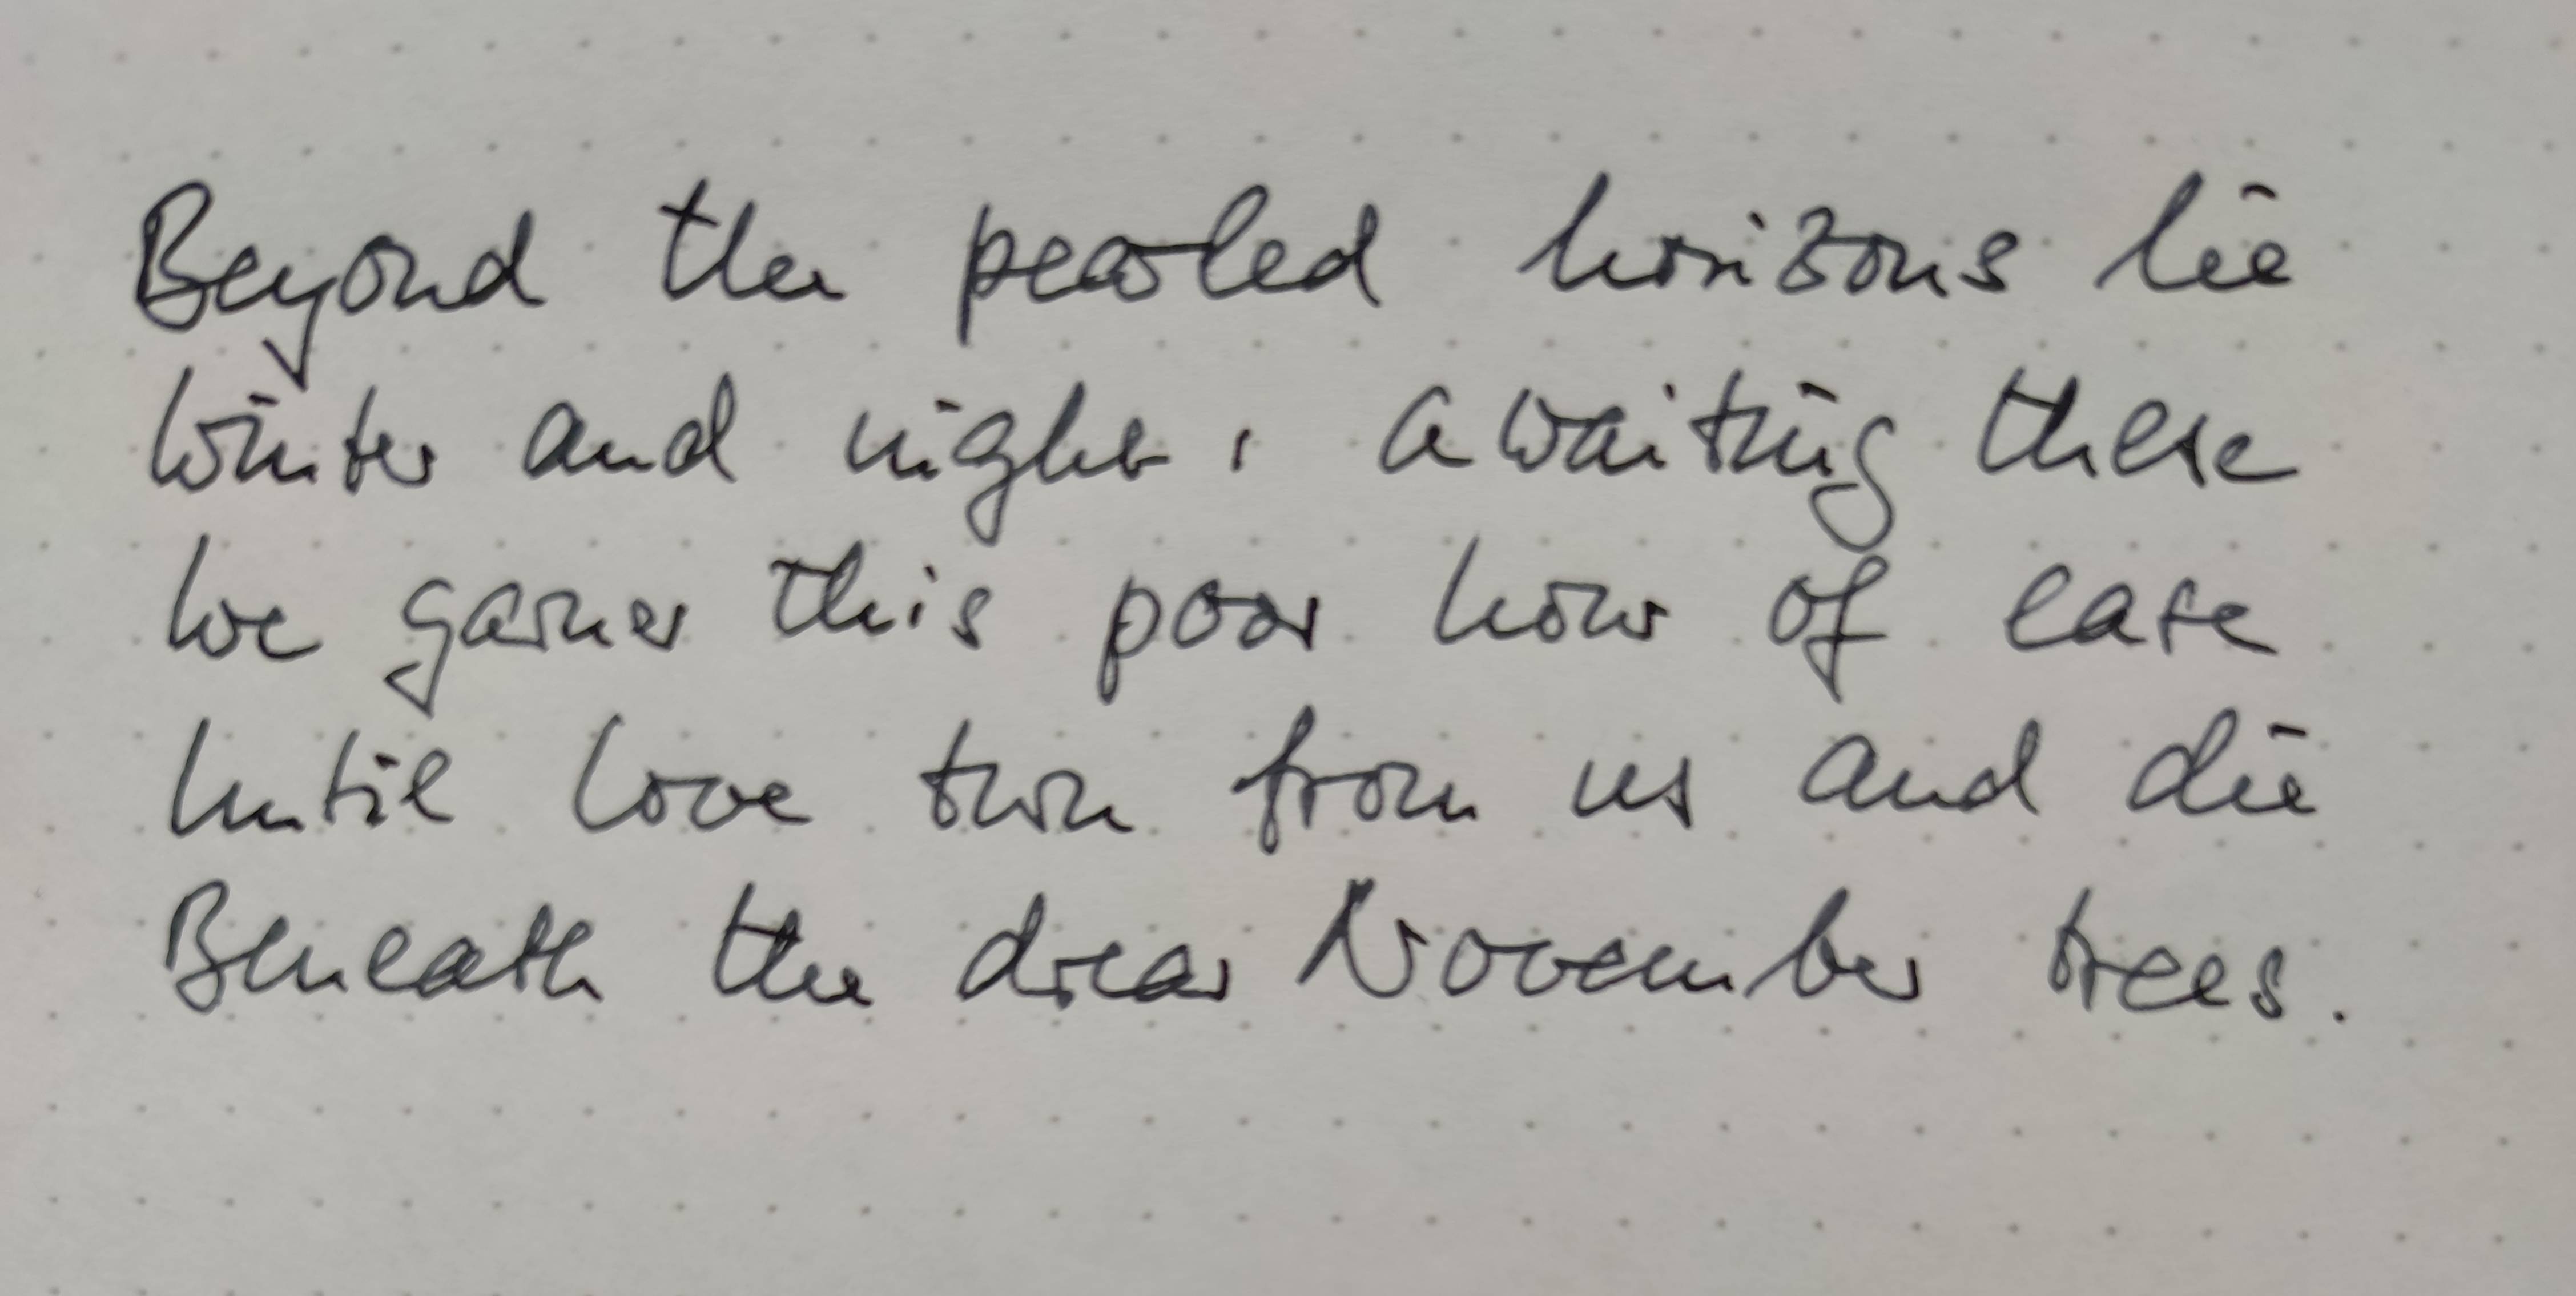 Beyond the pearled horizons lie
Winter and night: awaiting these
We garner this poor hour of ease
Until love turn from us and die
Beneath the drear November trees.